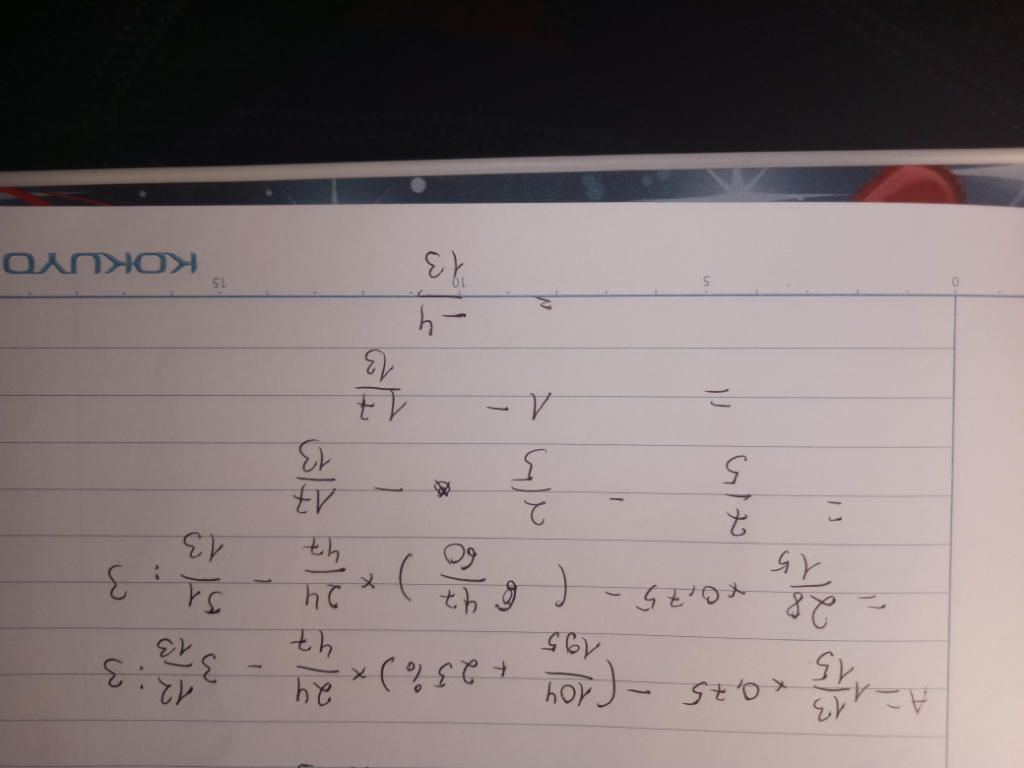 A = 1 13/15 × 0,75 - (104/195 + 25%) × 24/47 - 3 12/13 : 3
= 28/15 × 0,75 - (47/60) × 24/47 - 51/13 : 3
= 7/5 - 2/5 - 17/13
= 1 - 17/13
= -4/13
0 5 10 15
KOKUYO